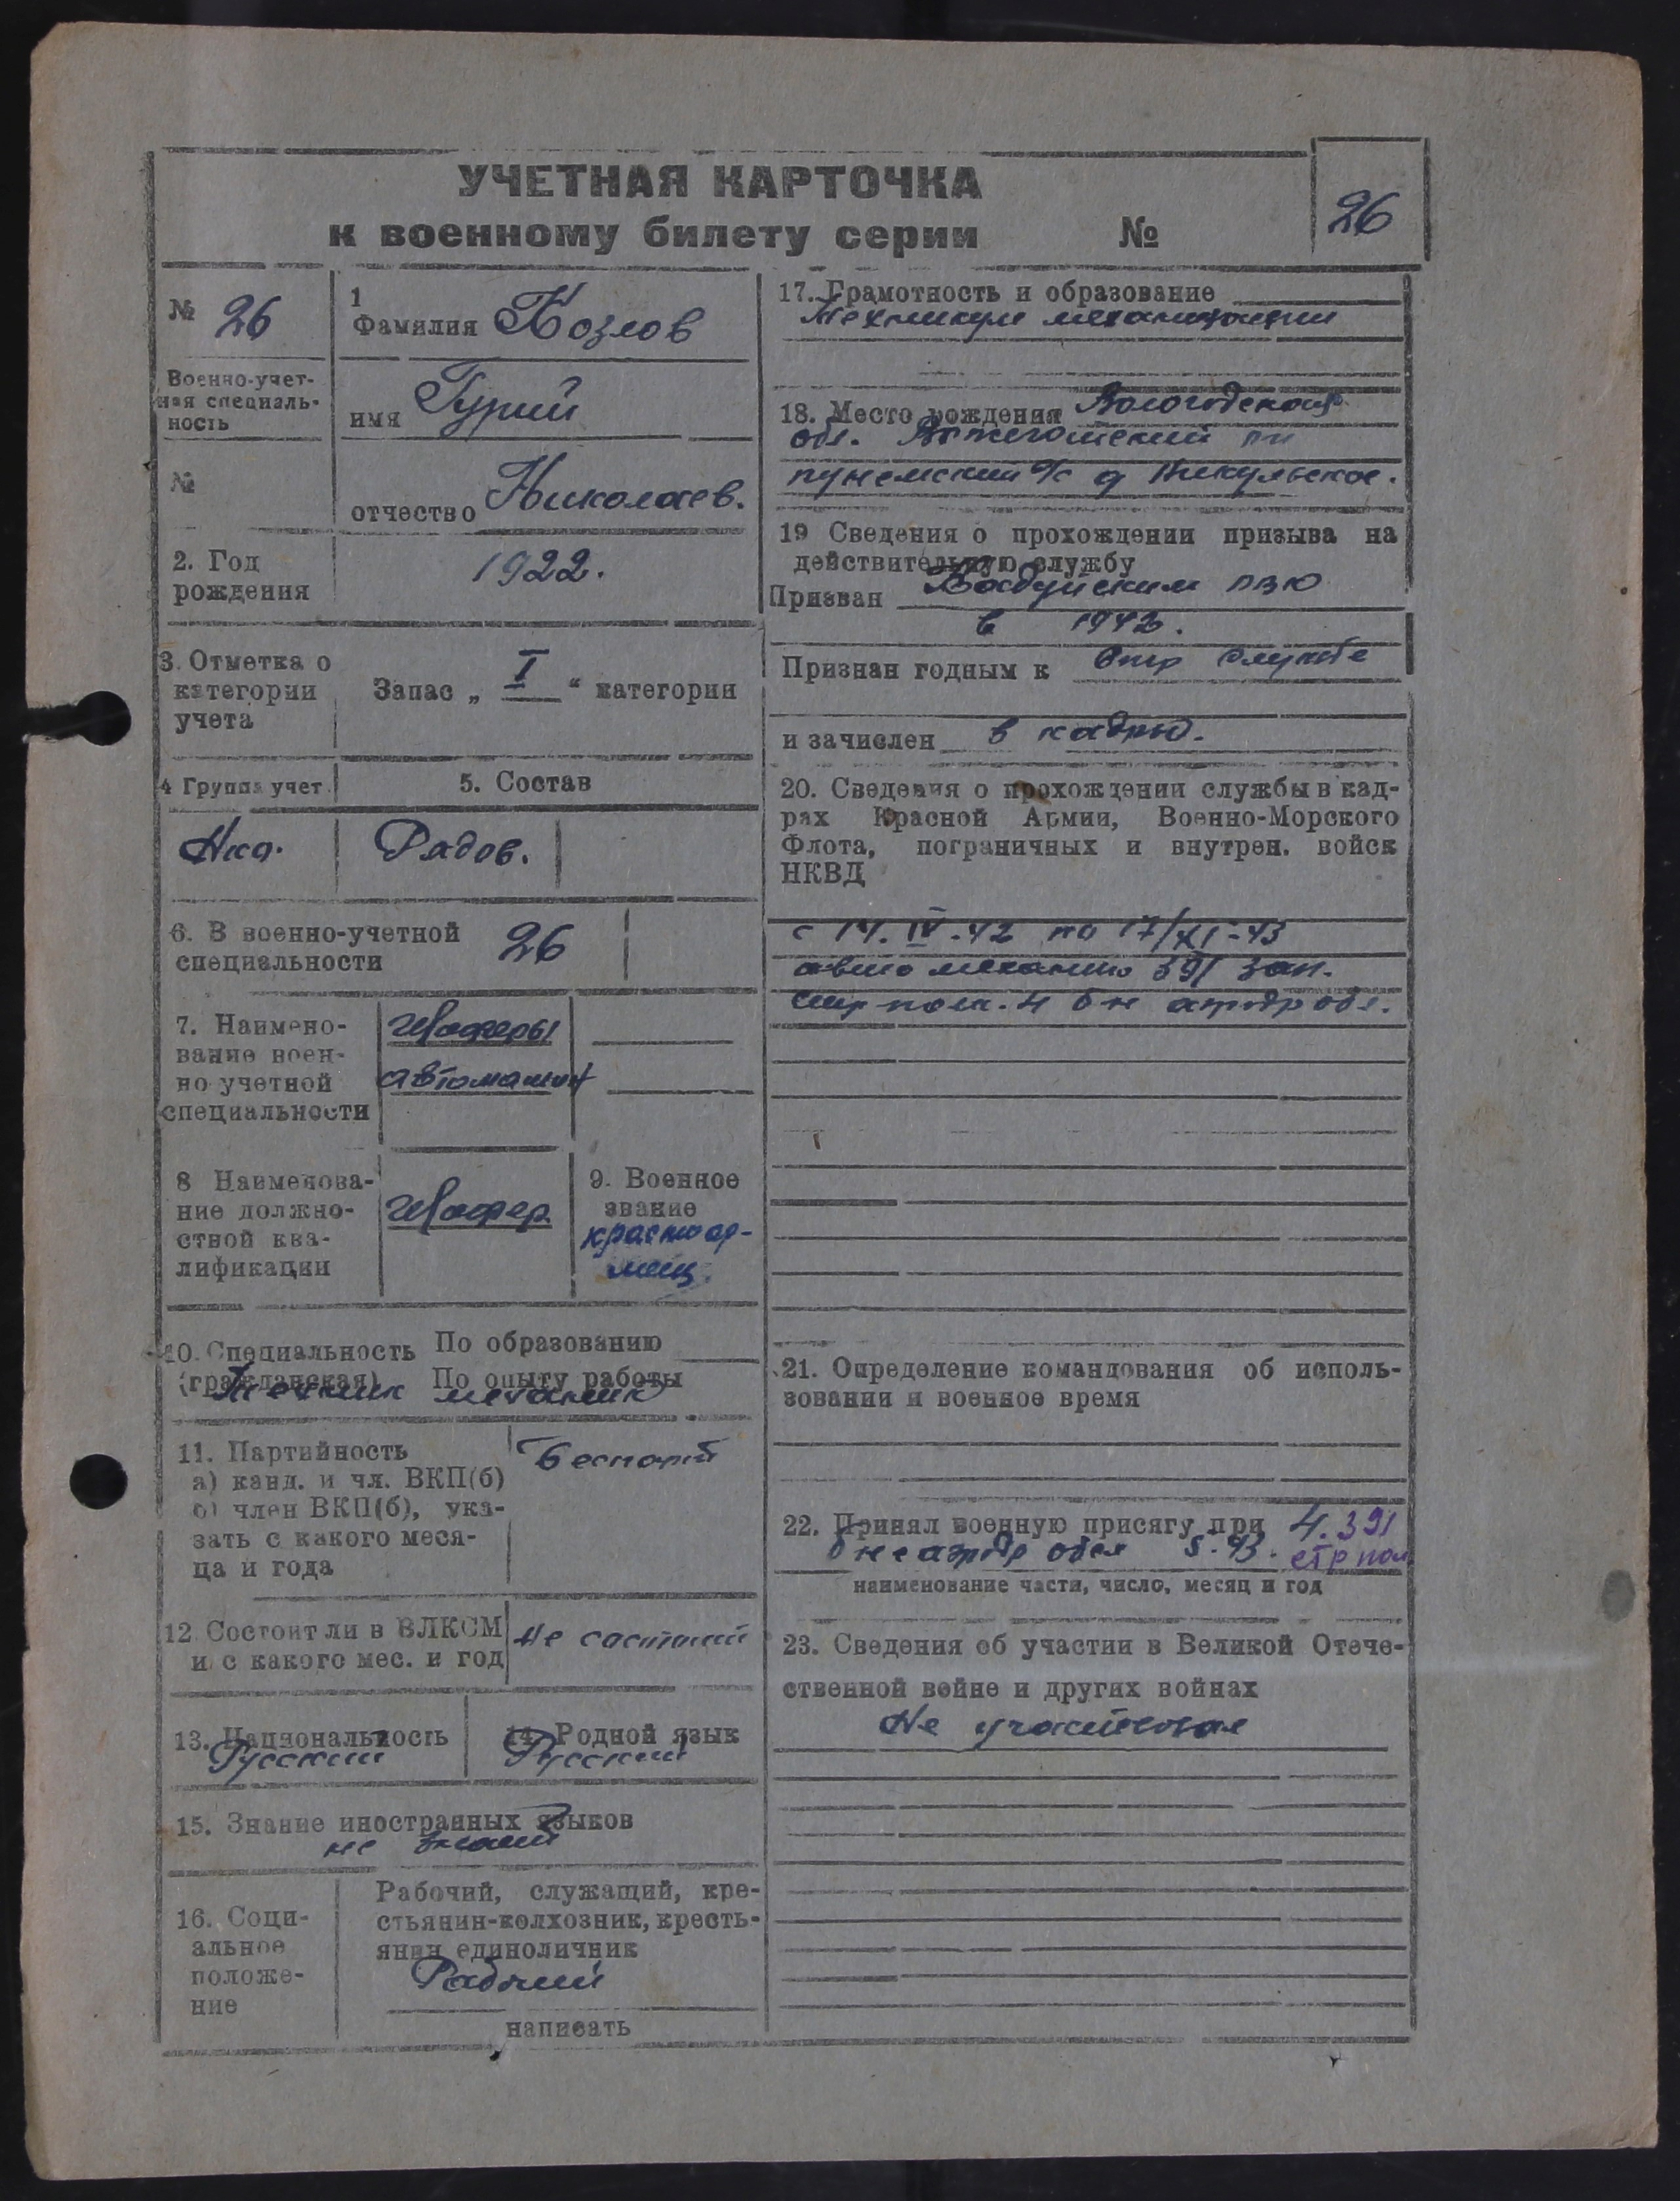 УЧЕТНАЯ КАРТОЧКА
к военному билету серии №
26
№ 26
Военно-учет-
ная специаль-
ность
№
1
Фамилия Козлов
имя Гурий
отчество Николаев.
2. Год
рождения
1922.
3. Отметка о
категории
учета
Запас „ I “ категории
4 Группа учет.
5. Состав
Рядов.
6. В военно-учетной
специальности
26
7. Наимено-
вание воен-
но учетной
специальности
Шоферы
автомашин
8 Наименова-
ние должно-
стной ква-
лификации
Шофер
9. Военное
звание
красноар-
меец.
10. Специальность
(гражданская)
По образованию
По опыту работы
Техник механик
11. Партийность
а) канд. и чл. ВКП(б)
б) член ВКП(б), ука-
зать с какого меся-
ца и года
Беспарт
12 Состоит ли в ВЛКСМ
и с какого мес. и год
Не состоит
13. Национальность
Русский
14. Родной язык
Русский
15. Знание иностранных языков
не знает
16. Соци-
альное
положе-
ние
Рабочий, служащий, кре-
стьянин-колхозник, кресть-
янин единоличник
Рабочий
написать
17. Грамотность и образование
Техникум механизации
18. Место рождения Вологодская
обл. Вожегодский рн
пунемский с/с д Никульское.
19 Сведения о прохождении призыва на
действительную службу
Призван
в 1942.
Признан годным к стр службе
и зачислен в кадры.
20. Сведения о прохождении службы в кад-
рах Красной Армии, Военно-Морского
Флота, пограничных и внутрен. войск
НКВД
с 14. IV-42 по 17/XI-43
автомеханик 391 зап.
стр полк. 4 б-н аэродр обс.
21. Определение командования об исполь-
зовании и военное время
22. Принял военную присягу при 4.391
б не аэродр обсл 5.43. стр пол
наименование части, число, месяц и год
23. Сведения об участии в Великой Отече-
ственной войне и других войнах
Не участвовал